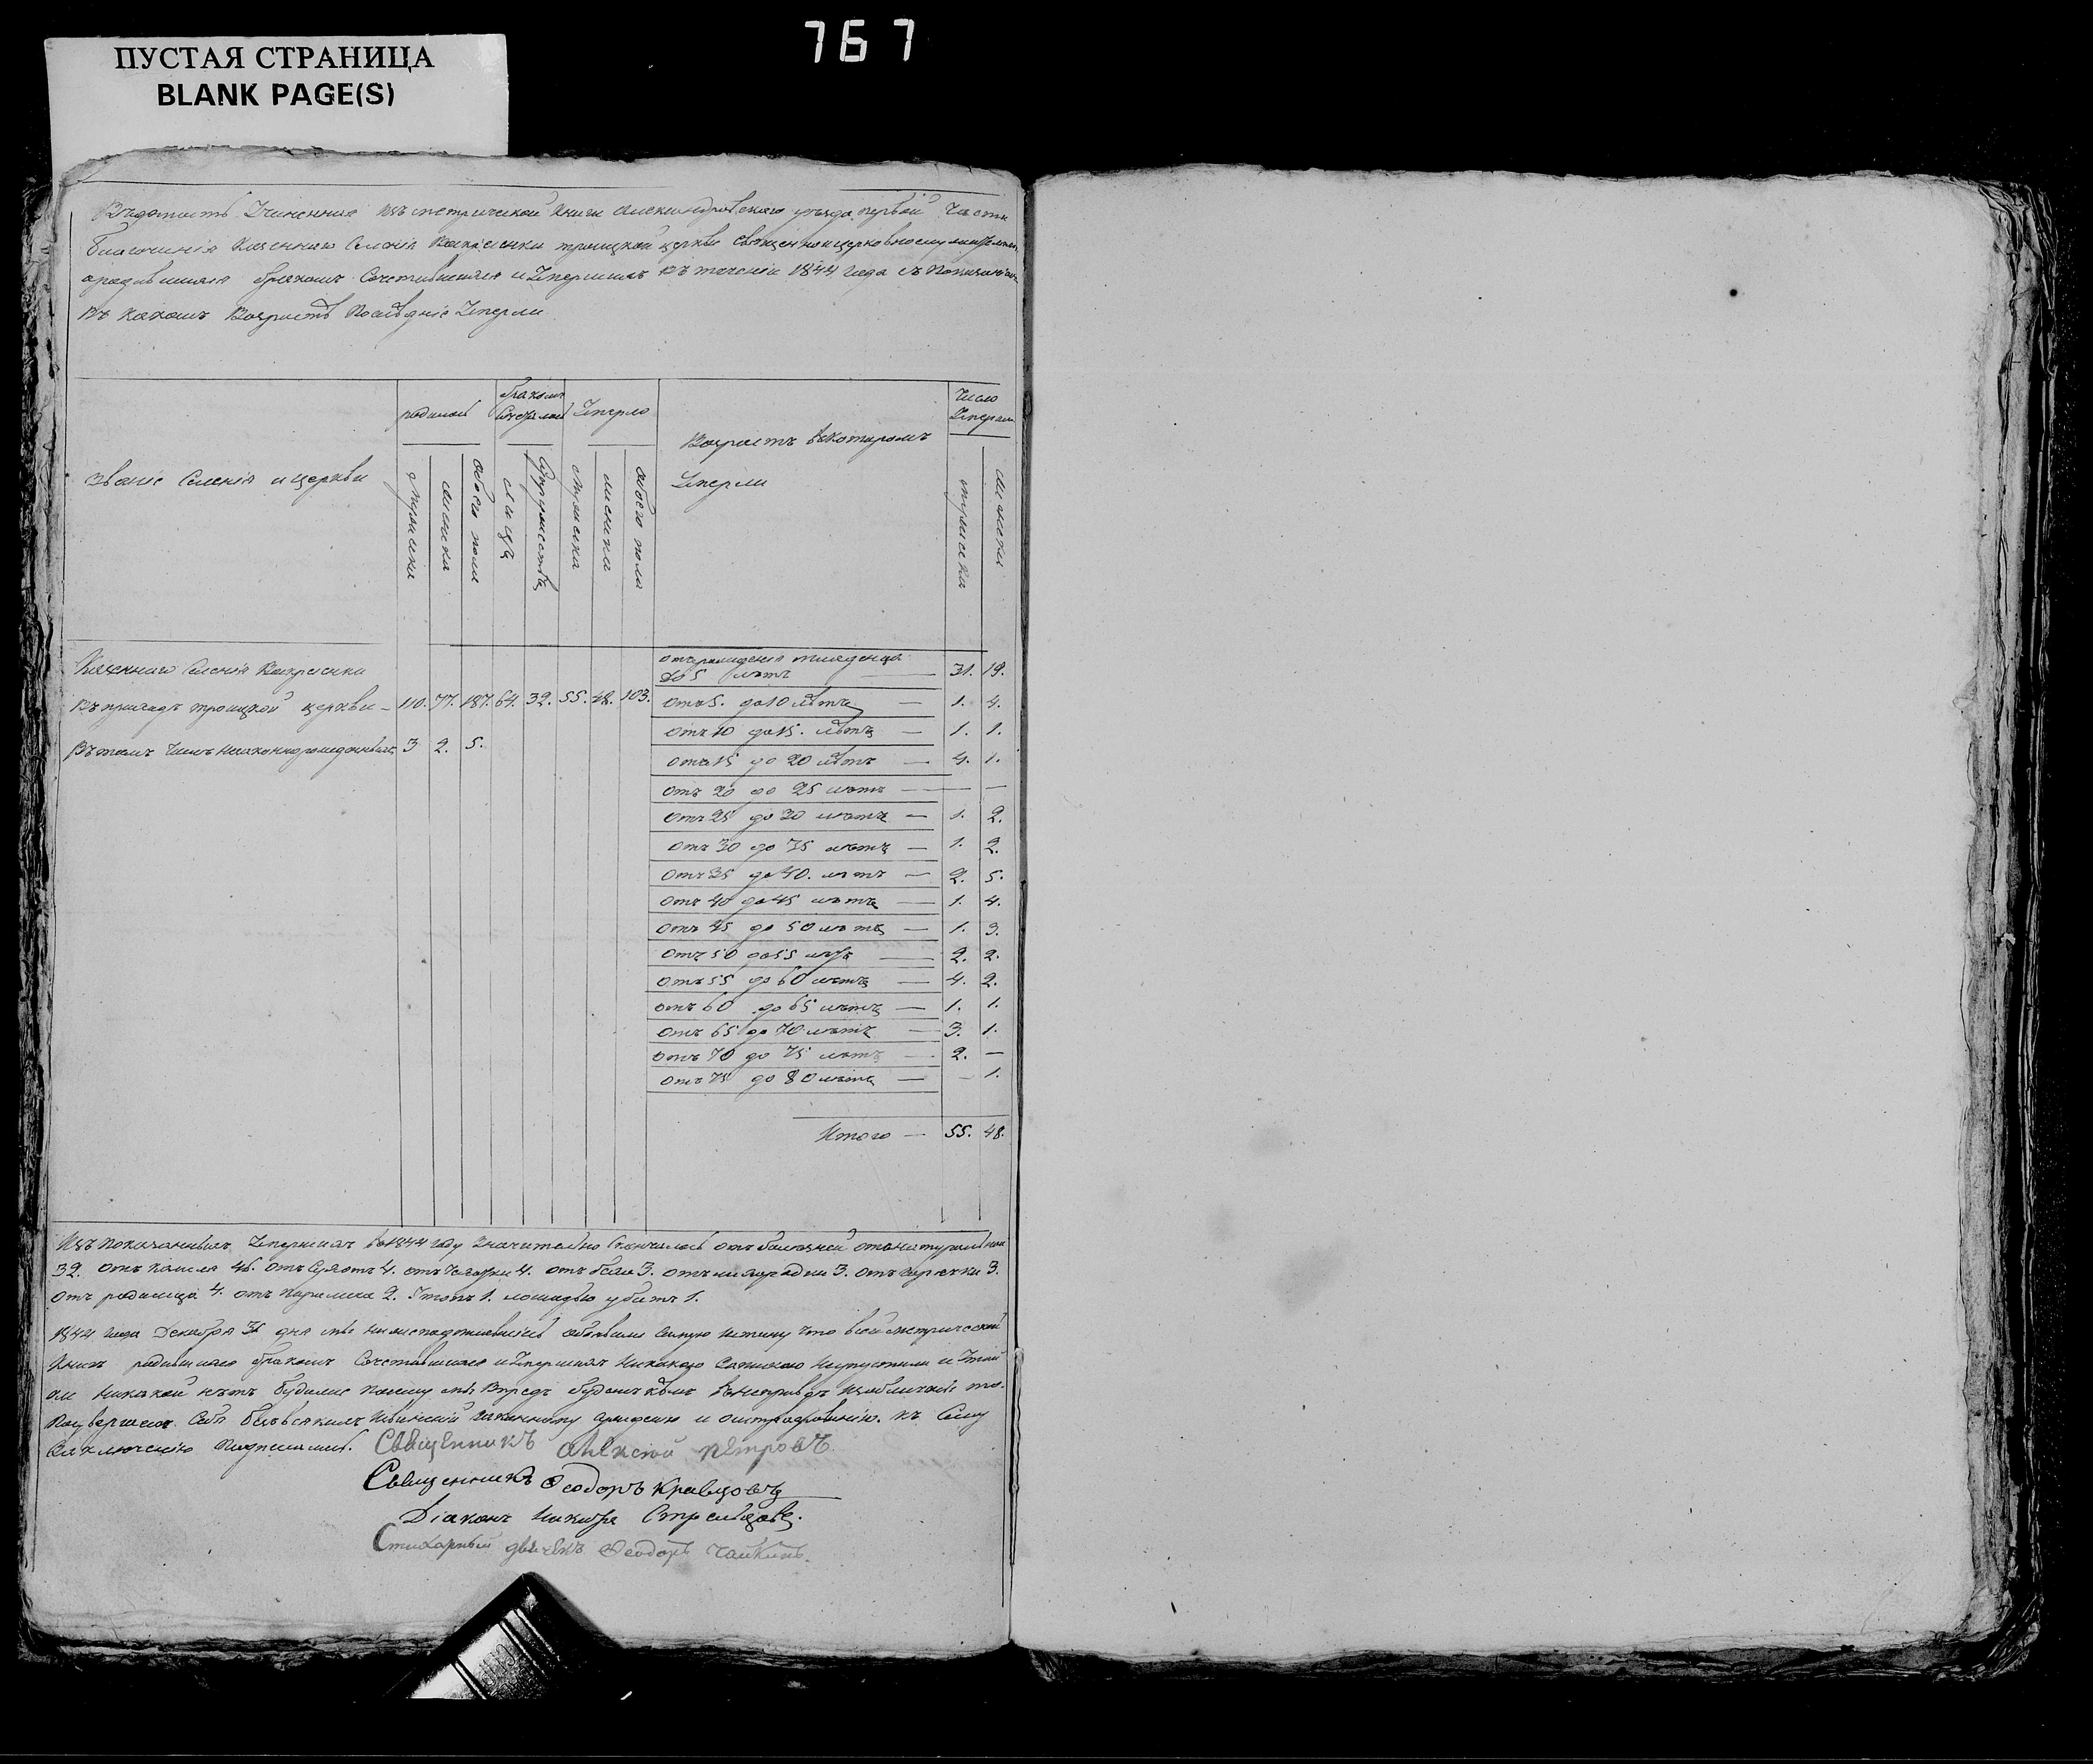 767
ПУСТАЯ СТРАНИЦА
BLANK PAGE(S)
Вѣдомость Учиненная Изъ метрической Книги Александровскаго уѣзда первой Части
благочинія Казеннаго Селенія Воскресенки троицкой церкви священноцерковнослужителями
ородившихся бракомъ Сочетавшихся и Умершихъ Въ теченіи 1844 Года съ Показаніемъ
Въ какомъ Возрастѣ Послѣдніе Умерли
Званіе Селенія и церкви
родилось
бракомъ Сочеталось
Умерло
Возрастъ вкоторомъ Умерли
Число Умершихъ
мужеска
женска
обоего пола
лица
Супружествъ
мужеска
женска
обоего пола
мужеска
женска
Казеннаго Селенія Воскресенки
Въ приходѣ троицкой церкви — 110. 77. 187. 64. 32. 55. 48. 103.
Въ томъ Числѣ Незаконнорожденныхъ 3 2. 5.
отъ рожденія младенца до 5 лѣтъ — 31. 19.
отъ 5. до 10 лѣтъ — 1. 4.
отъ 10 до 15. лѣтъ — 1. 1.
отъ 15 до 20 лѣтъ — 4. 1.
отъ 20 до 25 лѣтъ — — —
отъ 25 до 30 лѣтъ — 1. 2.
отъ 30 до 35 лѣтъ — 1. 2.
отъ 35 до 40. лѣтъ — 2. 5.
отъ 40 до 45 лѣтъ — 1. 4.
отъ 45 до 50 лѣтъ — 1. 3.
отъ 50 до 55 лѣтъ — 2. 2.
отъ 55 до 60 лѣтъ — 4. 2.
отъ 60 до 65 лѣтъ — 1. 1.
отъ 65 до 70 лѣтъ — 3. 1.
отъ 70 до 75 лѣтъ — 2. —
отъ 75 до 80 лѣтъ — — 1.
Итого — 55. 48.
Изъ показанныхъ Умершихъ в 1844 году Значительно Скончалось отъ болезней отъ натуральной
32. отъ кашля 46. отъ 4. отъ Чахотки 4. отъ 3. отъ лихорадки 3. отъ горячки 3.
отъ родимца 4. отъ 2. Утопъ 1. лошадью убитъ 1.
1844 года Декабря 31 дня мы нижеподписавшіеся объявили самую Истину Что всей метрической
Книгѣ родившихся бракомъ Сочетавшихся и Умершихъ Никакого Непропустили и
никакой нѣтъ будеже Посему мы Впредь будемъ кѣмъ Внеправдѣ Изобличены то
Подвергаемъ Себя безъ всякихъ законному сужденію и оштрафованію. Къ Сему
Заключенію Подписались. Священникъ Алексій Петровъ.
Священникъ Ѳеодоръ Кравцовъ
Діаконъ Никифоръ Стрельцовъ.
Стихарный дьячекъ Ѳеодоръ Чайкинъ.